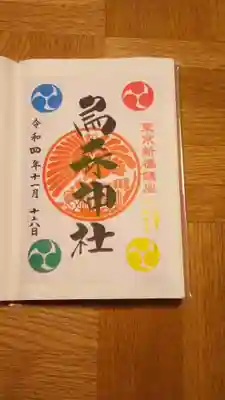 東京新橋鎮座
烏森神社
令和四年十一月十八日